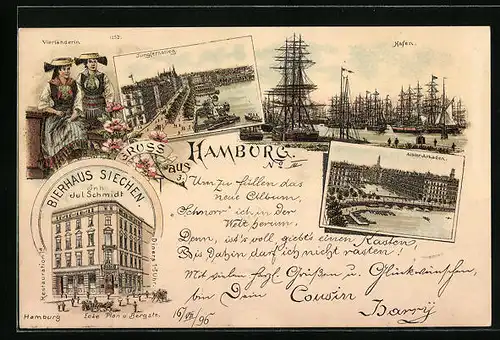 Vierländerin.
1252.
Jungfernstieg
Hafen.
GRUSS
aus
HAMBURG.
Alster-Arkaden.
BIERHAUS SIECHEN
Inh.
Jul Schmidt
Restaurations
Hamburg
Ecke Plan u. Bergstr.
Um zu füllen das
neue Album,
Schnorr' ich in der
Welt herum.
Denn, ist's voll giebt's einen Kasten,
Bis dahin darf ich nicht rasten!
Mit vielen herzl Grüßen u. Glückwünschen,
bin Dein Cousin
Harry
16/VII 96